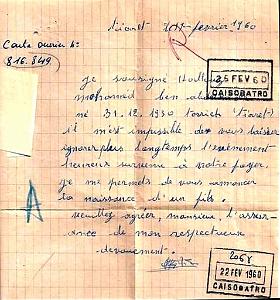 février 1960
Carte ouvrier N:
816.849
Je soussigné
mohamed ben
né 31.12.1930
il m'est impossible de vous laisser
ignorer plus longtemps l'événement
heureux survenu à notre foyer,
je me permets de vous annoncer
la naissance d'un fils.
veuillez agréer, monsieur, l'assur-
ance de mon respectueux
dévouement.
25 FEV 60
CAISOBATRO
22 FEV 1960
CAISOBATRO